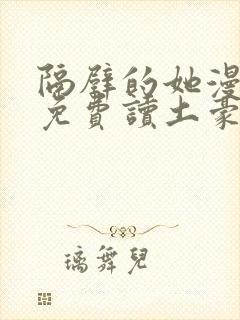 隔壁的她漫
免費讀土豪
璃舞兒